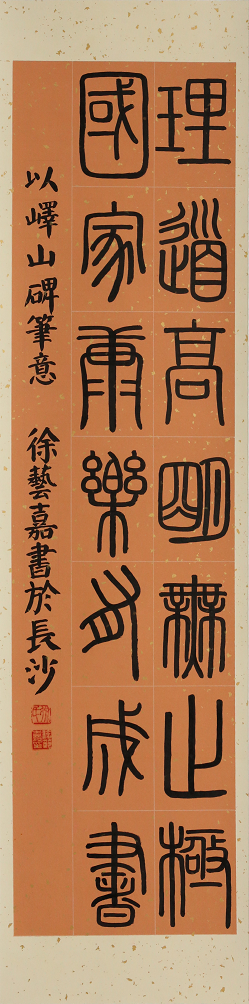 理道高明無止極
國家康樂有成書
以嶧山碑筆意 徐藝嘉書於長沙